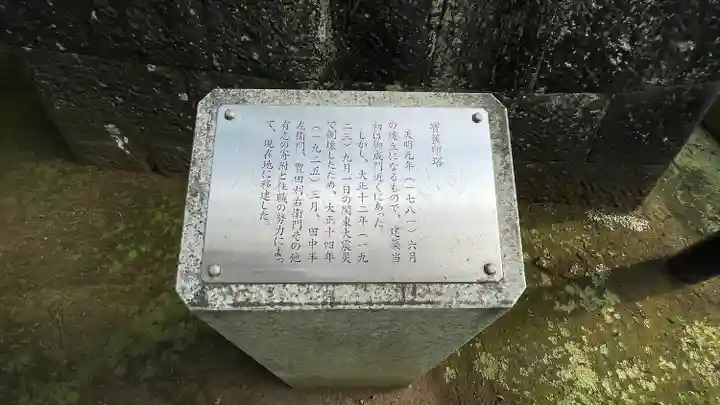 寳篋印塔
天明元年（一七八一）六月
の建立になるもので、建築当
初は御成門近くにあった。
しかし、大正十二年（一九
二三）九月一日の関東大震災
で倒壊したため、大正十四年
（一九二五）三月、田中半
左衛門、豊田利右衛門その他
有志の寄附と住職の努力によっ
て、現在地に移建した。